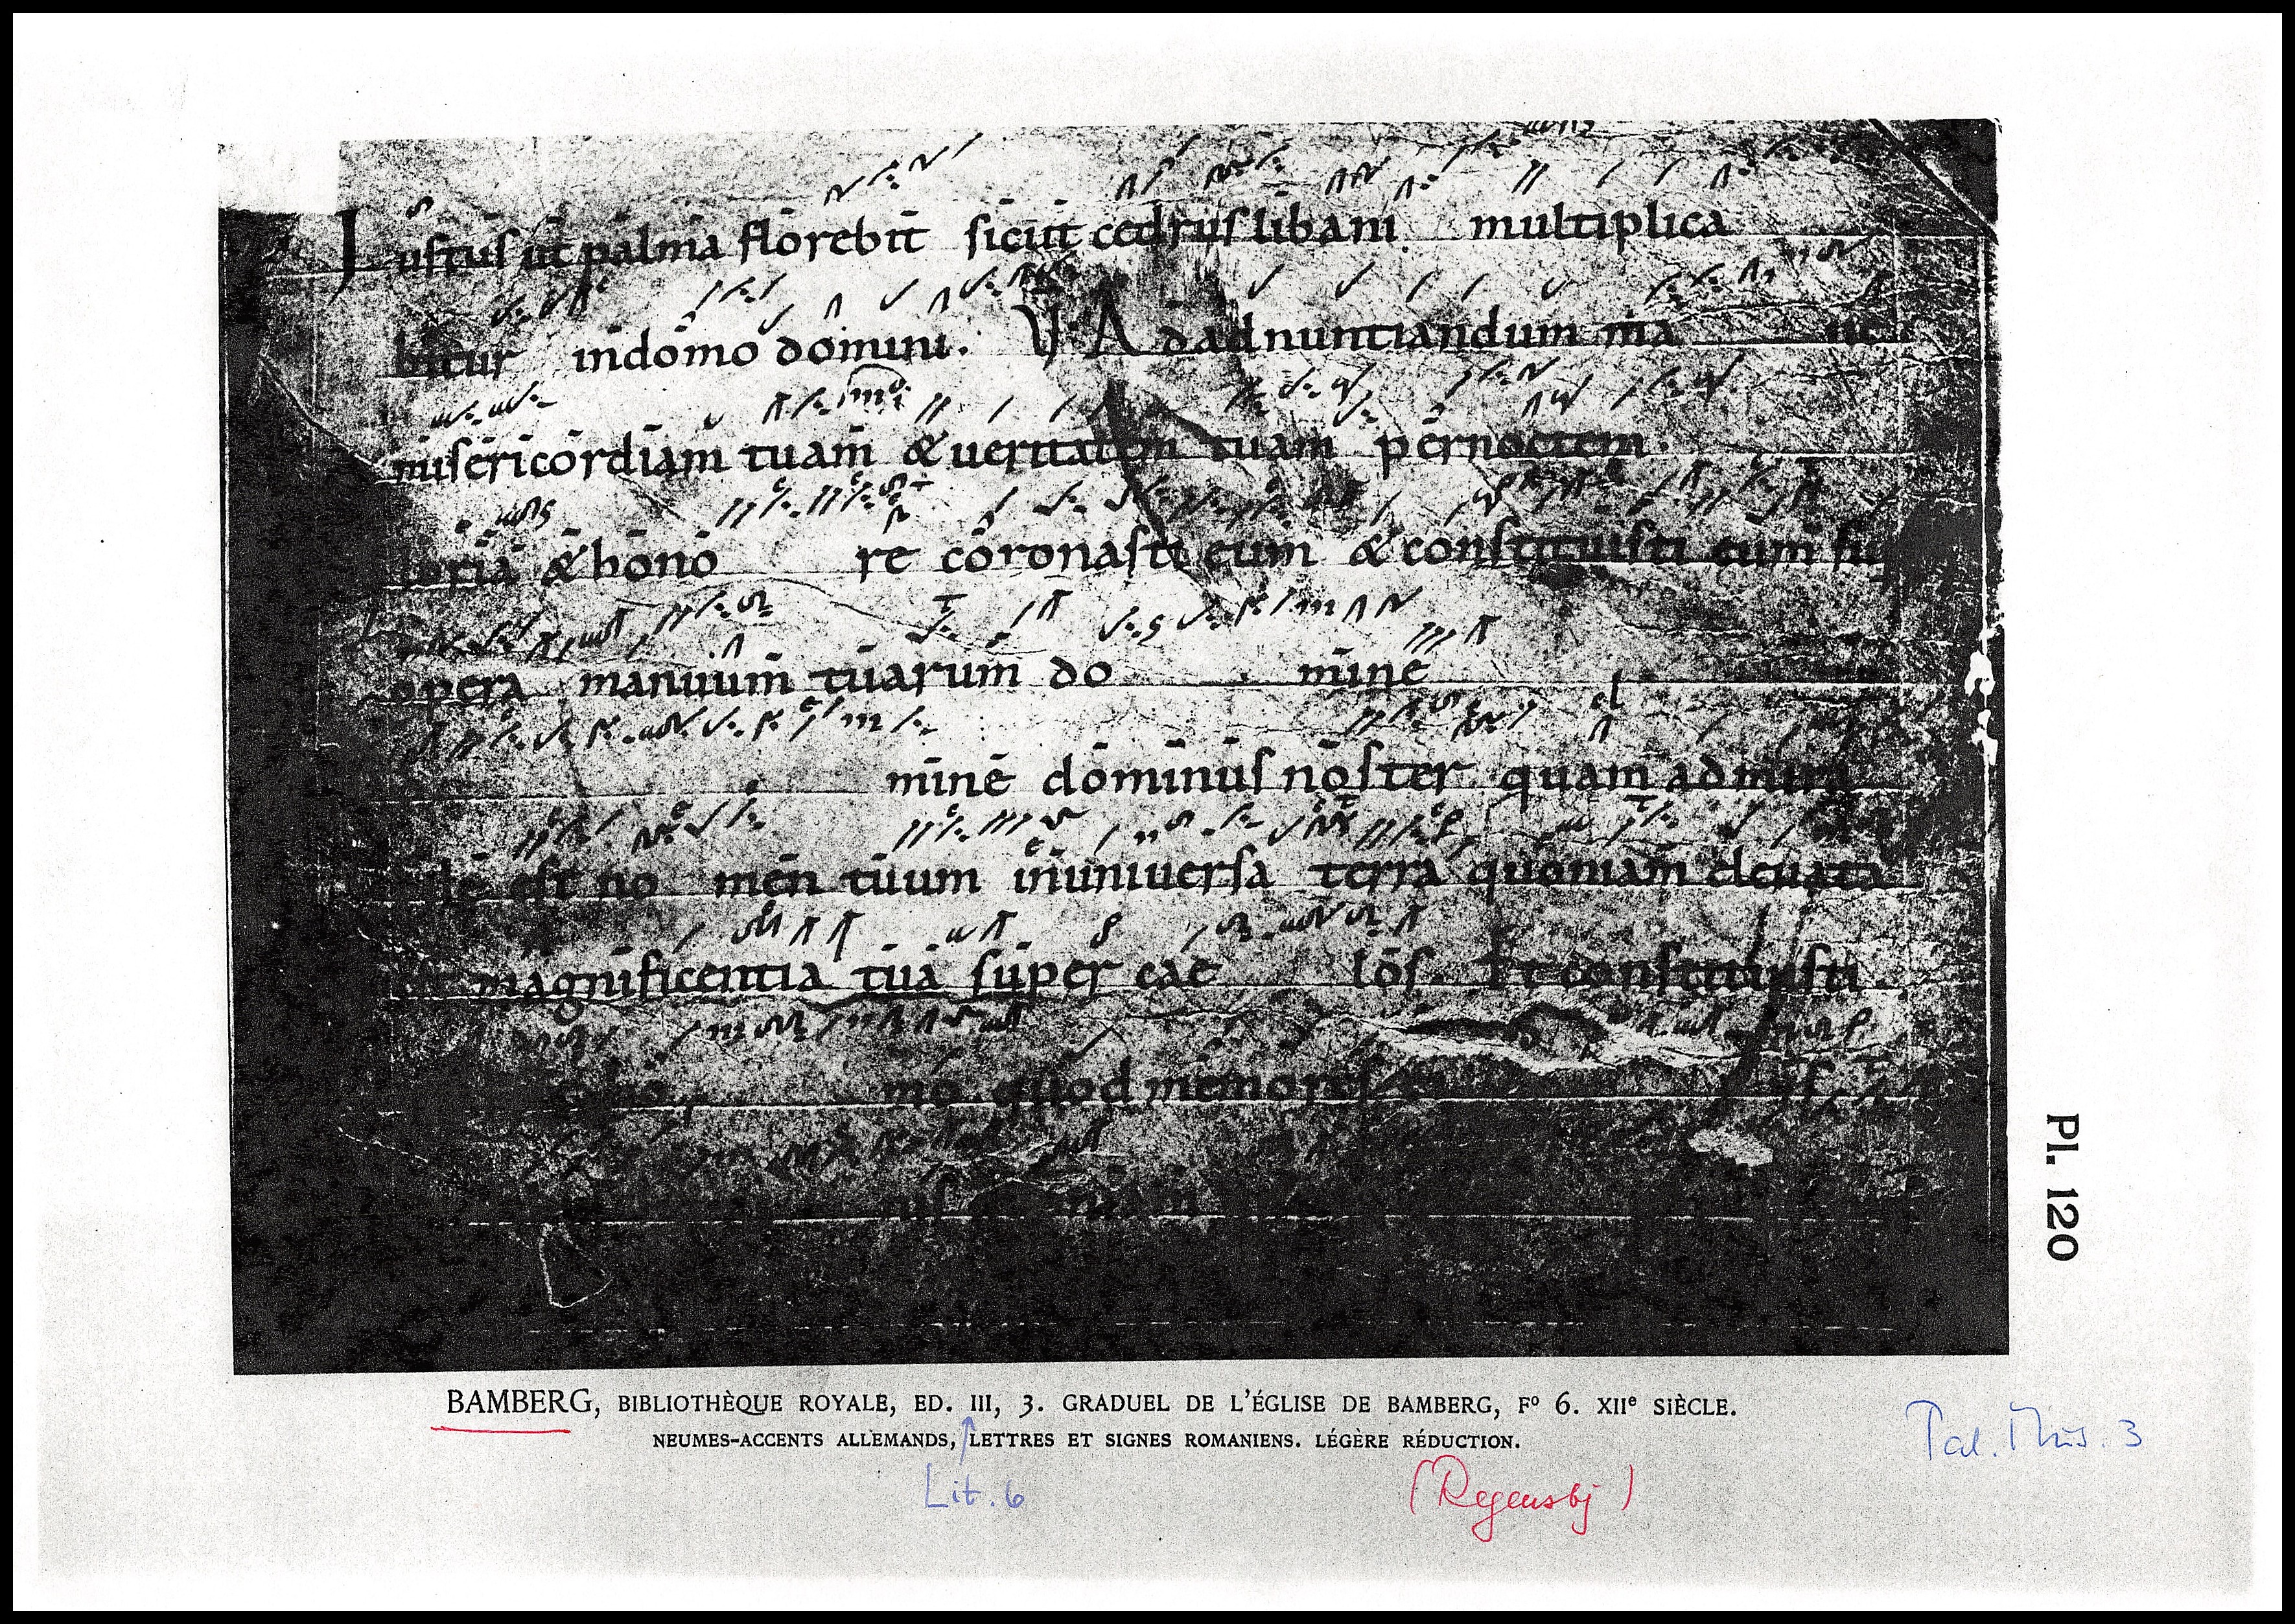 Iustus ut palma florebit sicut cedrus libani multiplica
bitur indomo domini. V. Adadnuntiandum ma ne
misericordiam tuam & ueritatem tuam per noctem.
loria & hono re coronasti eum & constituisti eum su
opera manuum tuarum do mine
el
mine dominus noster quam admira
bile est no men tuum inuniuersa terra quoniam eleuata
est magnificentia tua super cae los. Et constituisti
mo quod memores
nis
Pl. 120
BAMBERG, BIBLIOTHÈQUE ROYALE, ED. III, 3. GRADUEL DE L'ÉGLISE DE BAMBERG, Fº 6. XIIe SIÈCLE.
NEUMES-ACCENTS ALLEMANDS, LETTRES ET SIGNES ROMANIENS. LÉGÈRE RÉDUCTION.
Pal. Mus. 3
Lit. 6
(Regensbg)